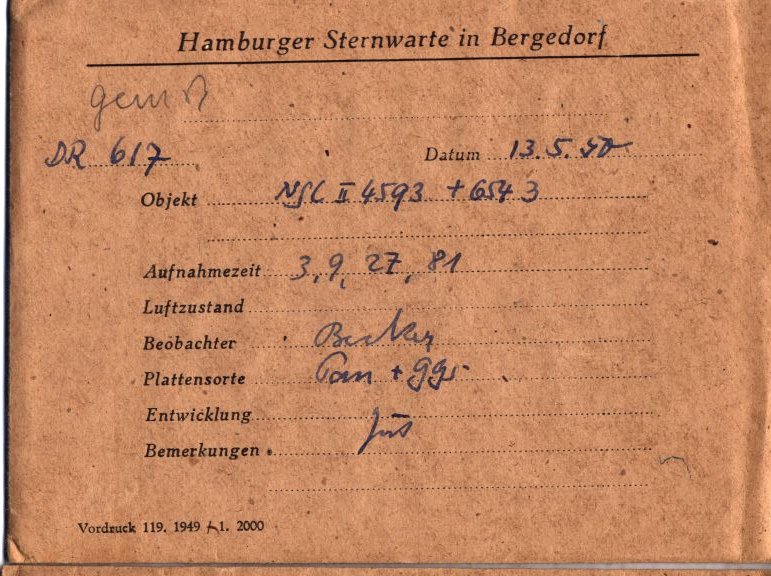 Hamburger Sternwarte in Bergedorf
gem
DR 617 Datum 13.5.50
Objekt NGC II 4593 + 6543
Aufnahmezeit 3, 9, 27, 81
Luftzustand
Beobachter Becker
Plattensorte Pan + GG5
Entwicklung
Bemerkungen gut
Vordruck 119. 1949 / 1. 2000